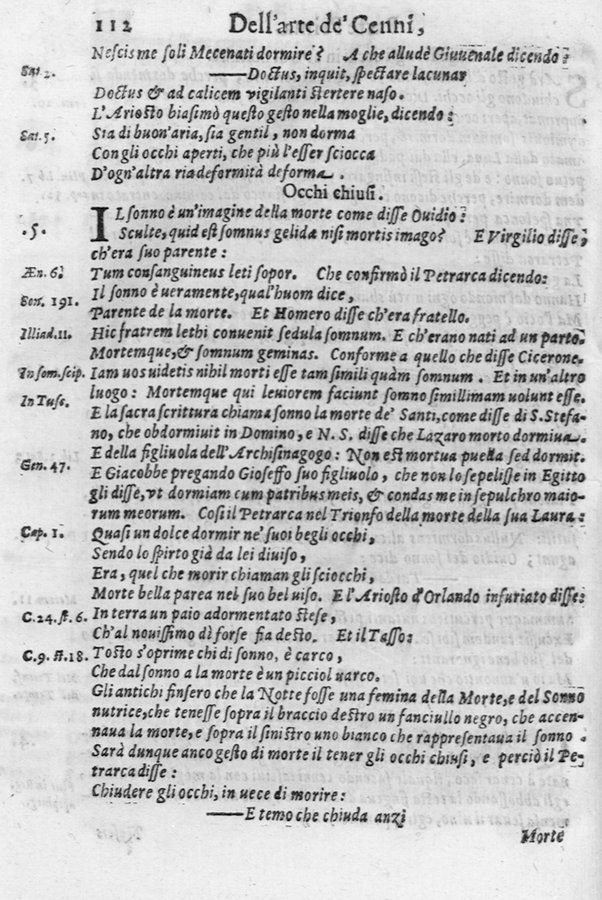 112 Dell'arte de' Cenni,
Nescis me soli Mecenati dormire? A che allude Giuuenale dicendo:
Sat. 2. ——Doctus, inquit, spectare lacunar
Doctus & ad calicem vigilanti stertere naso.
L'Ariosto biasimò questo gesto nella moglie, dicendo:
Sat. 5. Sia di buon'aria, sia gentil, non dorma
Con gli occhi aperti, che più l'esser sciocca
D'ogn'altra ria deformità deforma.
Occhi chiusi.
.5. IL sonno è un'imagine della morte come disse Ouidio:
Sculte, quid est somnus gelidæ nisi mortis imago? E Virgilio disse,
ch'era suo parente:
Æn. 6. Tum consanguineus leti sopor. Che confirmò il Petrarca dicendo:
Son. 191. Il sonno è ueramente, qual'huom dice,
Parente de la morte. Et Homero disse ch'era fratello.
Illiad. 11. Hic fratrem lethi convenit sedula somnum. E ch'erano nati ad un parto.
Mortemque, & somnum geminas. Conforme a quello che disse Cicerone.
In som. scip. Iam uos uidetis nihil morti esse tam simili quàm somnum. Et in un'altro
In Tusc. luogo: Mortemque qui leuiorem faciunt somno simillimam uolunt esse.
E la sacra scrittura chiama sonno la morte de' Santi, come disse di S. Stefa-
no, che obdormiuit in Domino, e N. S. disse che Lazaro morto dormiua.
E della figliuola dell'Archisinagogo: Non est mortua puella sed dormit.
Gen. 47. E Giacobbe pregando Gioseffo suo figliuolo, che non lo sepelisse in Egitto
gli disse, vt dormiam cum patribus meis, & condas me in sepulchro maio-
rum meorum. Cosi il Petrarca nel Trionfo della morte della sua Laura:
Cap. 1. Quasi un dolce dormir ne' suoi begli occhi,
Sendo lo spirto già da lei diuiso,
Era, quel che morir chiaman gli sciocchi,
Morte bella parea nel suo bel uiso. E l'Ariosto d'Orlando infuriato disse:
C. 24. st. 6. In terra un paio adormentato stese,
Ch'al nouissimo dì forse fia desto. Et il Tasso:
C. 9. st. 18. Tosto s'oprime chi di sonno, è carco,
Che dal sonno a la morte è un picciol uarco.
Gli antichi finsero che la Notte fosse una femina della Morte, e del Sonno
nutrice, che tenesse sopra il braccio destro un fanciullo negro, che accen-
naua la morte, e sopra il sinistro uno bianco che rappresentaua il sonno.
Sarà dunque anco gesto di morte il tener gli occhi chiusi, e perciò il Pe-
trarca disse:
Chiudere gli occhi, in uece di morire:
——E temo che chiuda anzi
Morte